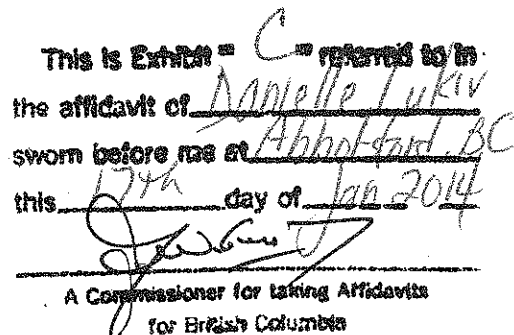 This is Exhibit " C " referred to in
the affidavit of Danielle Lukiv
sworn before me at Abbotsford, BC
this 17th day of Jan 2014
A Commissioner for taking Affidavits
for British Columbia